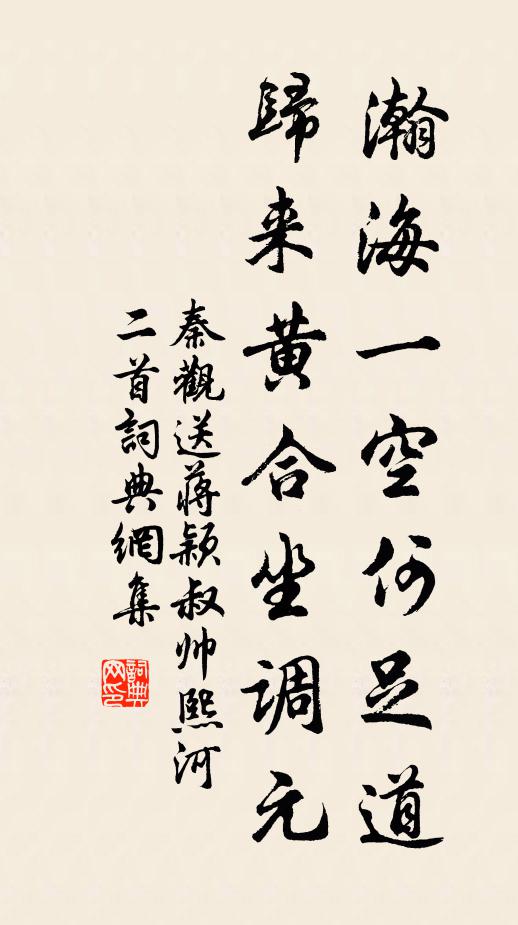 瀚海一空何足道
歸来黄合坐調元
秦觀送蔣颖叔帅熙河
二首詞典網集
詞典
网印